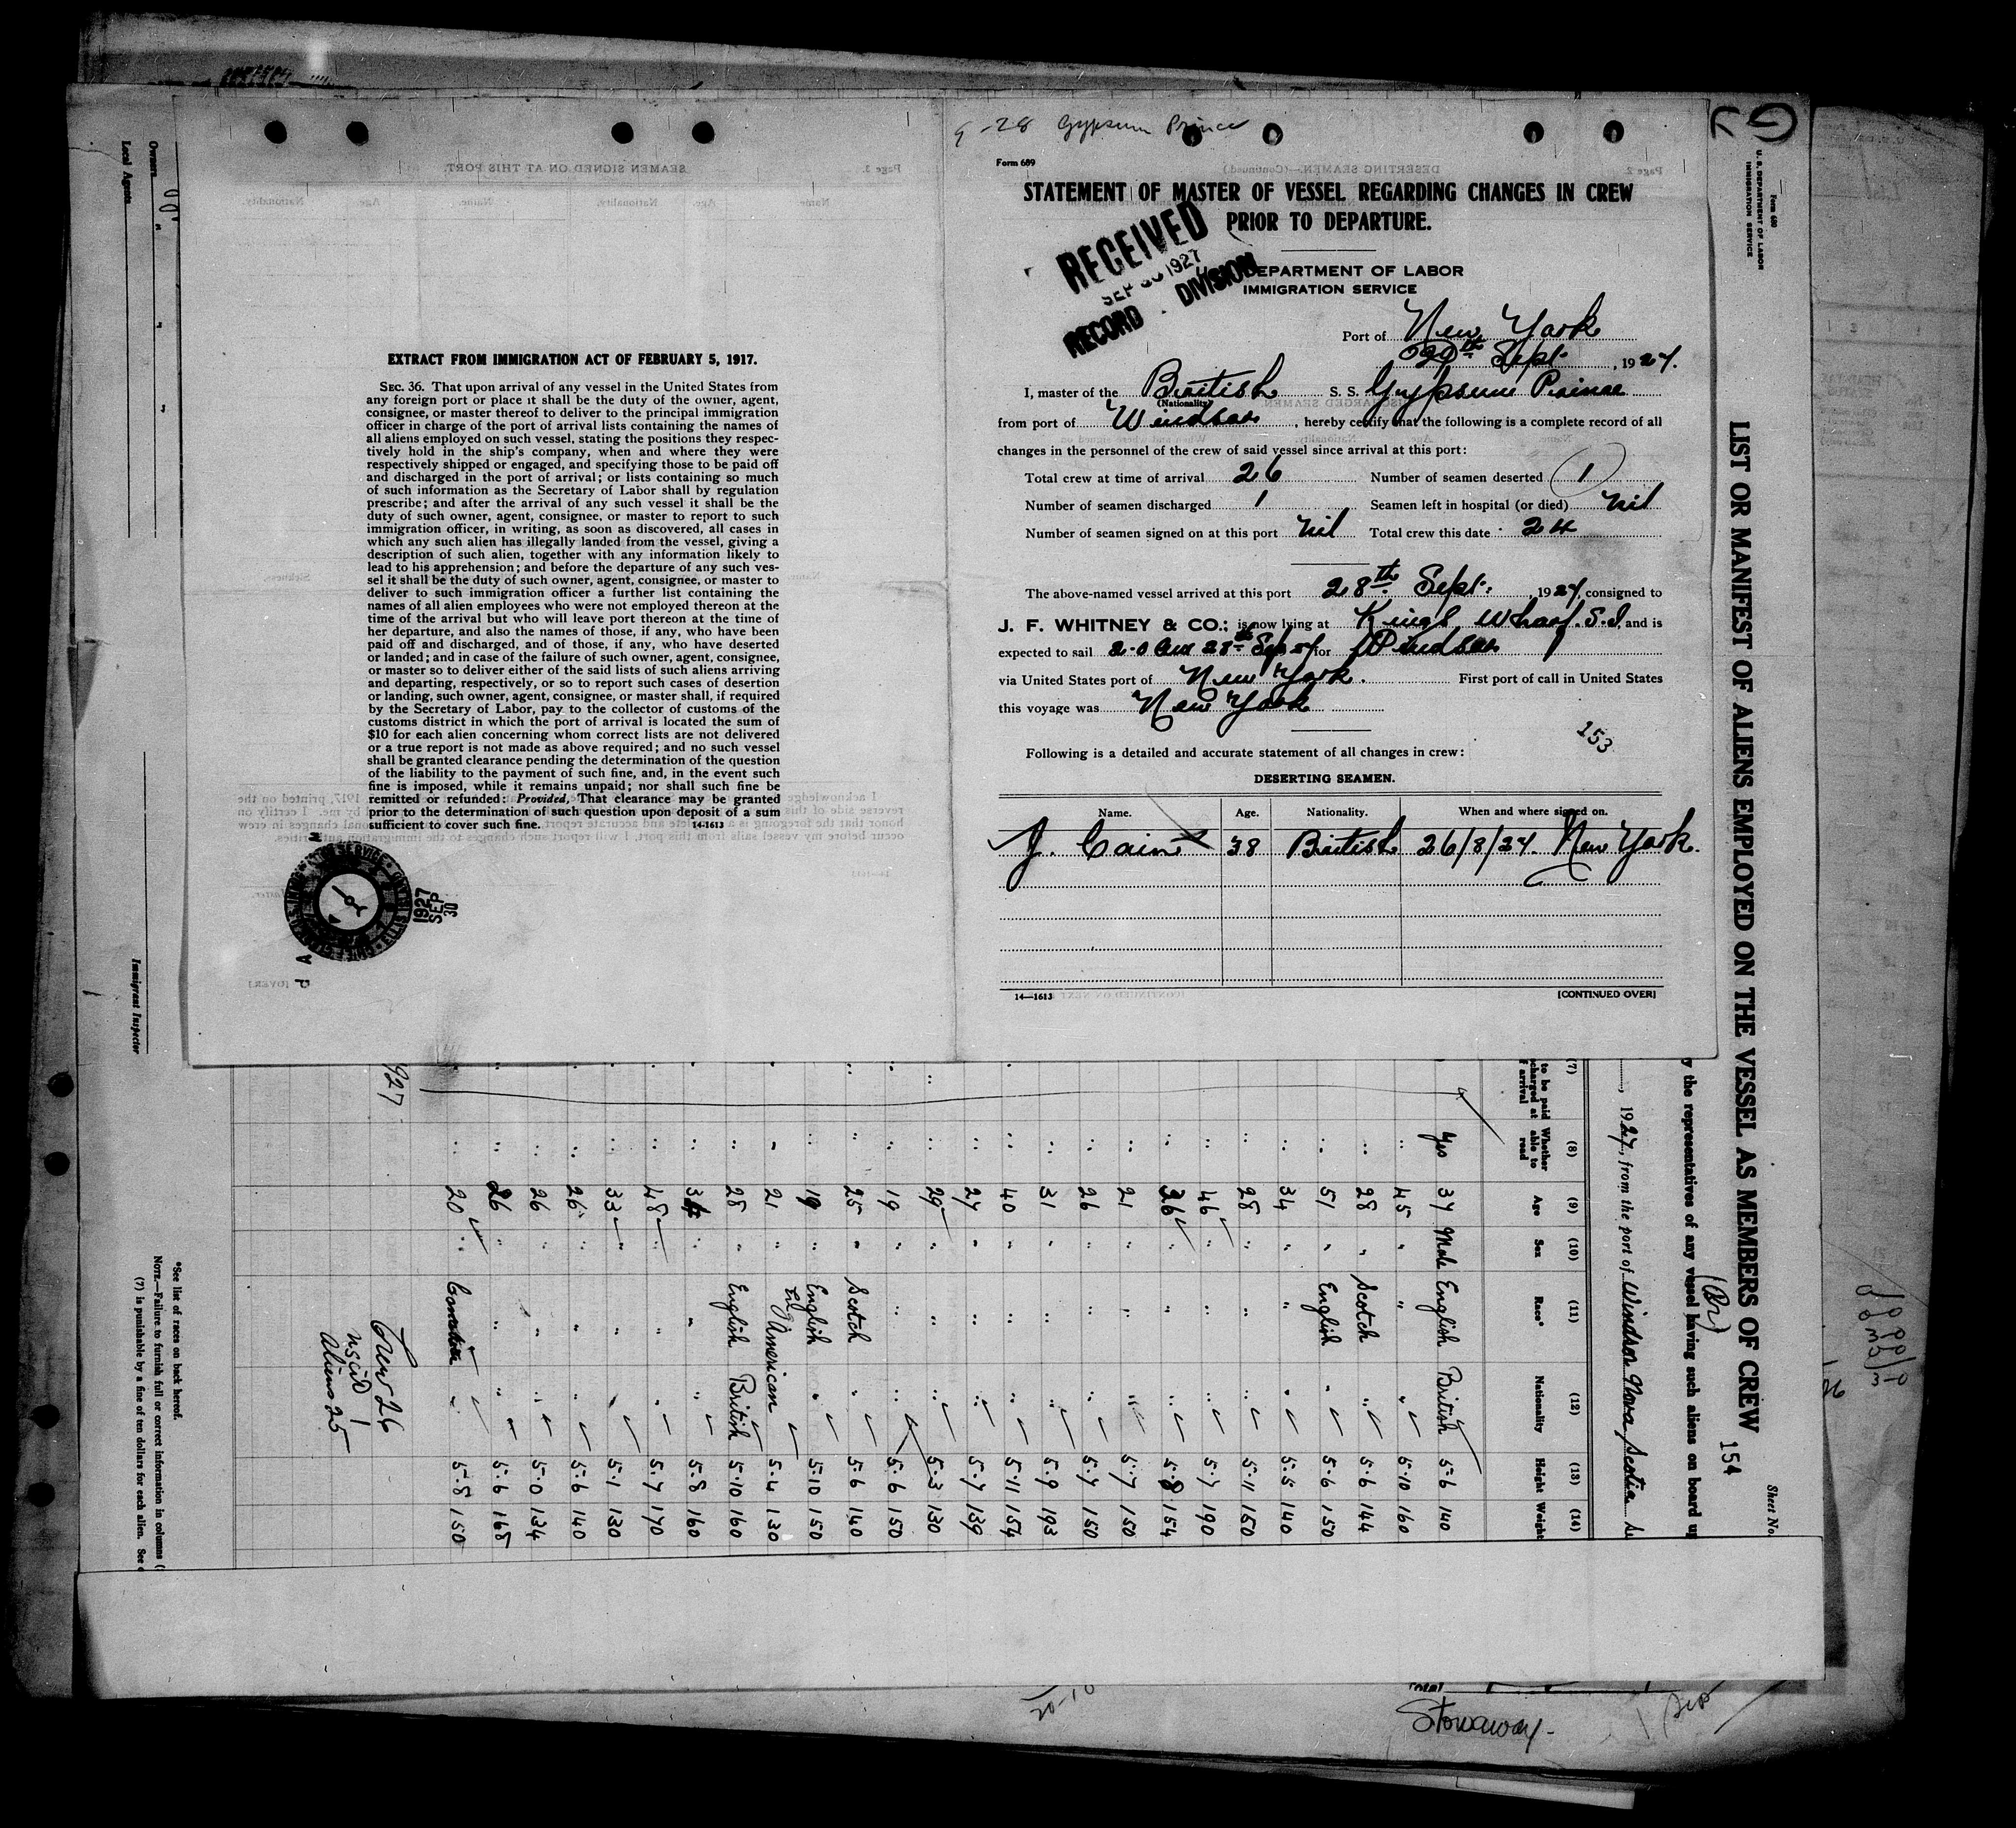 9-28 Gypsum Prince
Form 689
STATEMENT OF MASTER OF VESSEL REGARDING CHANGES IN CREW
PRIOR TO DEPARTURE.
RECEIVED
SEP 30 1927
RECORD DIVISION
DEPARTMENT OF LABOR
IMMIGRATION SERVICE
Port of New York
Sept. , 1927.
I, master of the British S. S. Gypsum Prince
(Nationality)
from port of Windsor, hereby certify that the following is a complete record of all
changes in the personnel of the crew of said vessel since arrival at this port:
Total crew at time of arrival 26 Number of seamen deserted 1
Number of seamen discharged 1 Seamen left in hospital (or died) nil
Number of seamen signed on at this port nil Total crew this date 24
The above-named vessel arrived at this port 28th Sept: , 1927, consigned to
J. F. WHITNEY & CO.; is now lying at Kings Wharf. S.I, and is
expected to sail for Windsor
via United States port of New York. First port of call in United States
this voyage was New York
153
Following is a detailed and accurate statement of all changes in crew:
DESERTING SEAMEN.
Name. Age. Nationality. When and where signed on.
J. Cain 38 British 26/8/27. New York.
14—1613 [CONTINUED OVER]
EXTRACT FROM IMMIGRATION ACT OF FEBRUARY 5, 1917.
SEC. 36. That upon arrival of any vessel in the United States from
any foreign port or place it shall be the duty of the owner, agent,
consignee, or master thereof to deliver to the principal immigration
officer in charge of the port of arrival lists containing the names of
all aliens employed on such vessel, stating the positions they respec-
tively hold in the ship's company, when and where they were
respectively shipped or engaged, and specifying those to be paid off
and discharged in the port of arrival; or lists containing so much
of such information as the Secretary of Labor shall by regulation
prescribe; and after the arrival of any such vessel it shall be the
duty of such owner, agent, consignee, or master to report to such
immigration officer, in writing, as soon as discovered, all cases in
which any such alien has illegally landed from the vessel, giving a
description of such alien, together with any information likely to
lead to his apprehension; and before the departure of any such ves-
sel it shall be the duty of such owner, agent, consignee, or master to
deliver to such immigration officer a further list containing the
names of all alien employees who were not employed thereon at the
time of the arrival but who will leave port thereon at the time of
her departure, and also the names of those, if any, who have been
paid off and discharged, and of those, if any, who have deserted
or landed; and in case of the failure of such owner, agent, consignee,
or master so to deliver either of the said lists of such aliens arriving
and departing, respectively, or so to report such cases of desertion
or landing, such owner, agent, consignee, or master shall, if required
by the Secretary of Labor, pay to the collector of customs of the
customs district in which the port of arrival is located the sum of
$10 for each alien concerning whom correct lists are not delivered
or a true report is not made as above required; and no such vessel
shall be granted clearance pending the determination of the question
of the liability to the payment of such fine, and, in the event such
fine is imposed, while it remains unpaid; nor shall such fine be
remitted or refunded: Provided, That clearance may be granted
prior to the determination of such question upon deposit of a sum
sufficient to cover such fine. 14-1613
1927
SEP
30
Form 680
U. S. DEPARTMENT OF LABOR
IMMIGRATION SERVICE
Sheet No.
LIST OR MANIFEST OF ALIENS EMPLOYED ON THE VESSEL AS MEMBERS OF CREW
154
(Br)
y the representatives of any vessel having such aliens on board u
, 1927, from the port of Windsor Nova Scotia
(7) (8) (9) (10) (11) (12) (13) (14)
to be paid Whether able to read Age Sex Race* Nationality Height Weight
Yes 37 Male English British 5-6 140
" 45 " " " 5-10 160
" 28 " Scotch " 5-6 144
" 51 " English " 5-6 150
" 34 " " " 5-5 140
" 28 " " " 5-11 150
" 46 " " " 5-7 190
" 36 " " " 5-8 154
" 21 " " " 5-7 150
" 26 " " " 5-7 150
" 31 " " " 5-9 193
" 40 " " " 5-11 154
" 27 " " " 5-7 139
" 29 " " " 5-3 130
" 19 " " " 5-6 150
" 25 " Scotch " 5-6 140
" 19 " English " 5-10 150
" 21 " Eng American 5-4 130
" 28 " English British 5-10 160
" " " " 5-8 160
" 48 " " " 5-7 170
" 33 " " " 5-1 130
" 26 " " " 5-6 140
" 26 " " " 5-0 134
" 26 " " " 5-6 165
" 20 " " 5-8 150
927
Crew 26
USCit 1
Aliens 25
*See list of races on back hereof.
NOTE.—Failure to furnish full or correct information in columns (
(7) is punishable by a fine of ten dollars for each alien. See
Owners
Local Agents
Immigrant Inspector
Total
Stowaway-
20-10